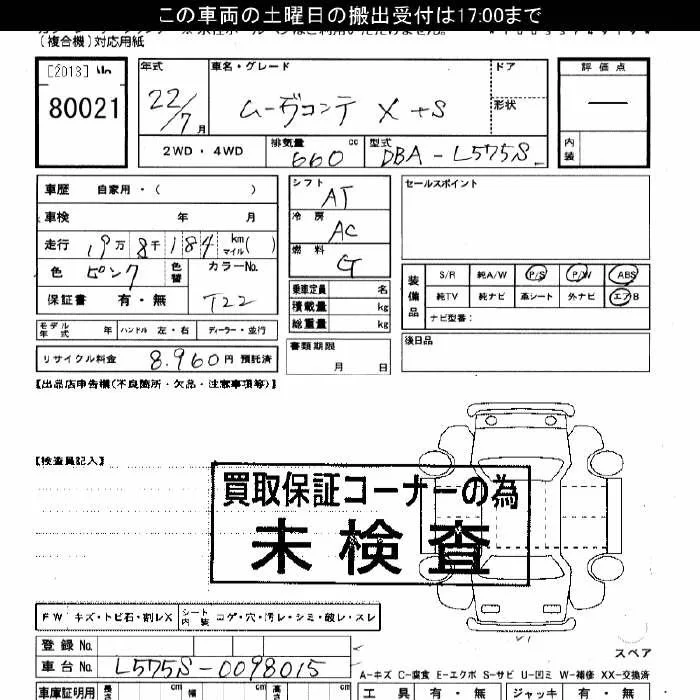 この車両の土曜日の搬出受付は17:00まで
(複合機)対応用紙
[2013]
80021
年式 22/7 月
車名・グレード ムーヴコンテ X +S
ドア
形状
評価点 —
内装
2WD・4WD
排気量 660 cc
型式 DBA-L575S
車歴 自家用・( )
車検 年 月
走行 19万8千184 km マイル( )
色 ピンク 色替 カラーNo. T22
保証書 有・無
シフト AT
冷房 AC
燃料 G
乗車定員 名
積載量 kg
総重量 kg
セールスポイント
装備品
S/R 純A/W P/S P/W ABS
純TV 純ナビ 革シート 外ナビ エアB
ナビ型番:
モデル年式 年 ハンドル 左・右 ディーラー・並行
リサイクル料金 8.960円 預託済
書類期限 月 日
後日品
【出品店申告欄(不良箇所・欠品・注意事項等)】
【検査員記入】
買取保証コーナーの為
未検査
FW キズ・トビ石・割レX
シート内装 コゲ・穴・汚レ・シミ・破レ・スレ
登録No.
車台No. L575S-0098015
スペア
A-キズ C-腐食 E-エクボ S-サビ U-凹ミ W-補修 XX-交換済
車庫証明用 長さ cm 幅 cm 高さ cm
工具 有・無 ジャッキ 有・無